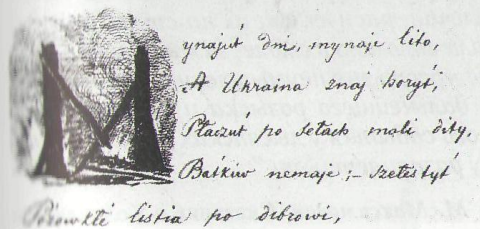 Mynajut́ dni, mynaje lito,
A Ukraina znaj horyt́,
Płaczut́ po sełach mali dity,
Bat́kiw nemaje; – szełestyt́
Pożowkłe listia po dibrowi,